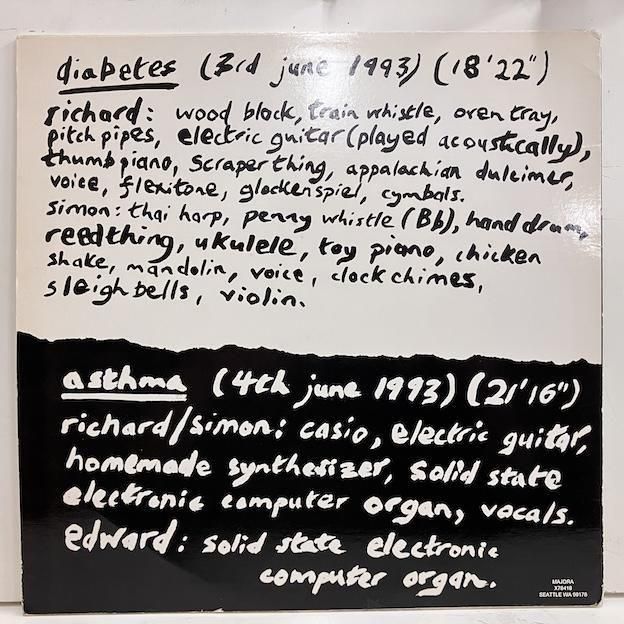 diabetes (3rd june 1993) (18'22")
richard: wood block, train whistle, oven tray,
pitch pipes, electric guitar (played acoustically),
thumb piano, scraper thing, appalachian dulcimer,
voice, flexitone, glockenspiel, cymbals.
simon: thai harp, penny whistle (Bb), hand drum,
reed thing, ukulele, toy piano, chicken
shake, mandolin, voice, clock chimes,
sleigh bells, violin.
asthma (4th june 1993) (21'16")
richard/simon: casio, electric guitar,
homemade synthesizer, solid state
electronic computer organ, vocals.
edward: solid state electronic
computer organ.
MAJORA
X78418
SEATTLE WA 98178